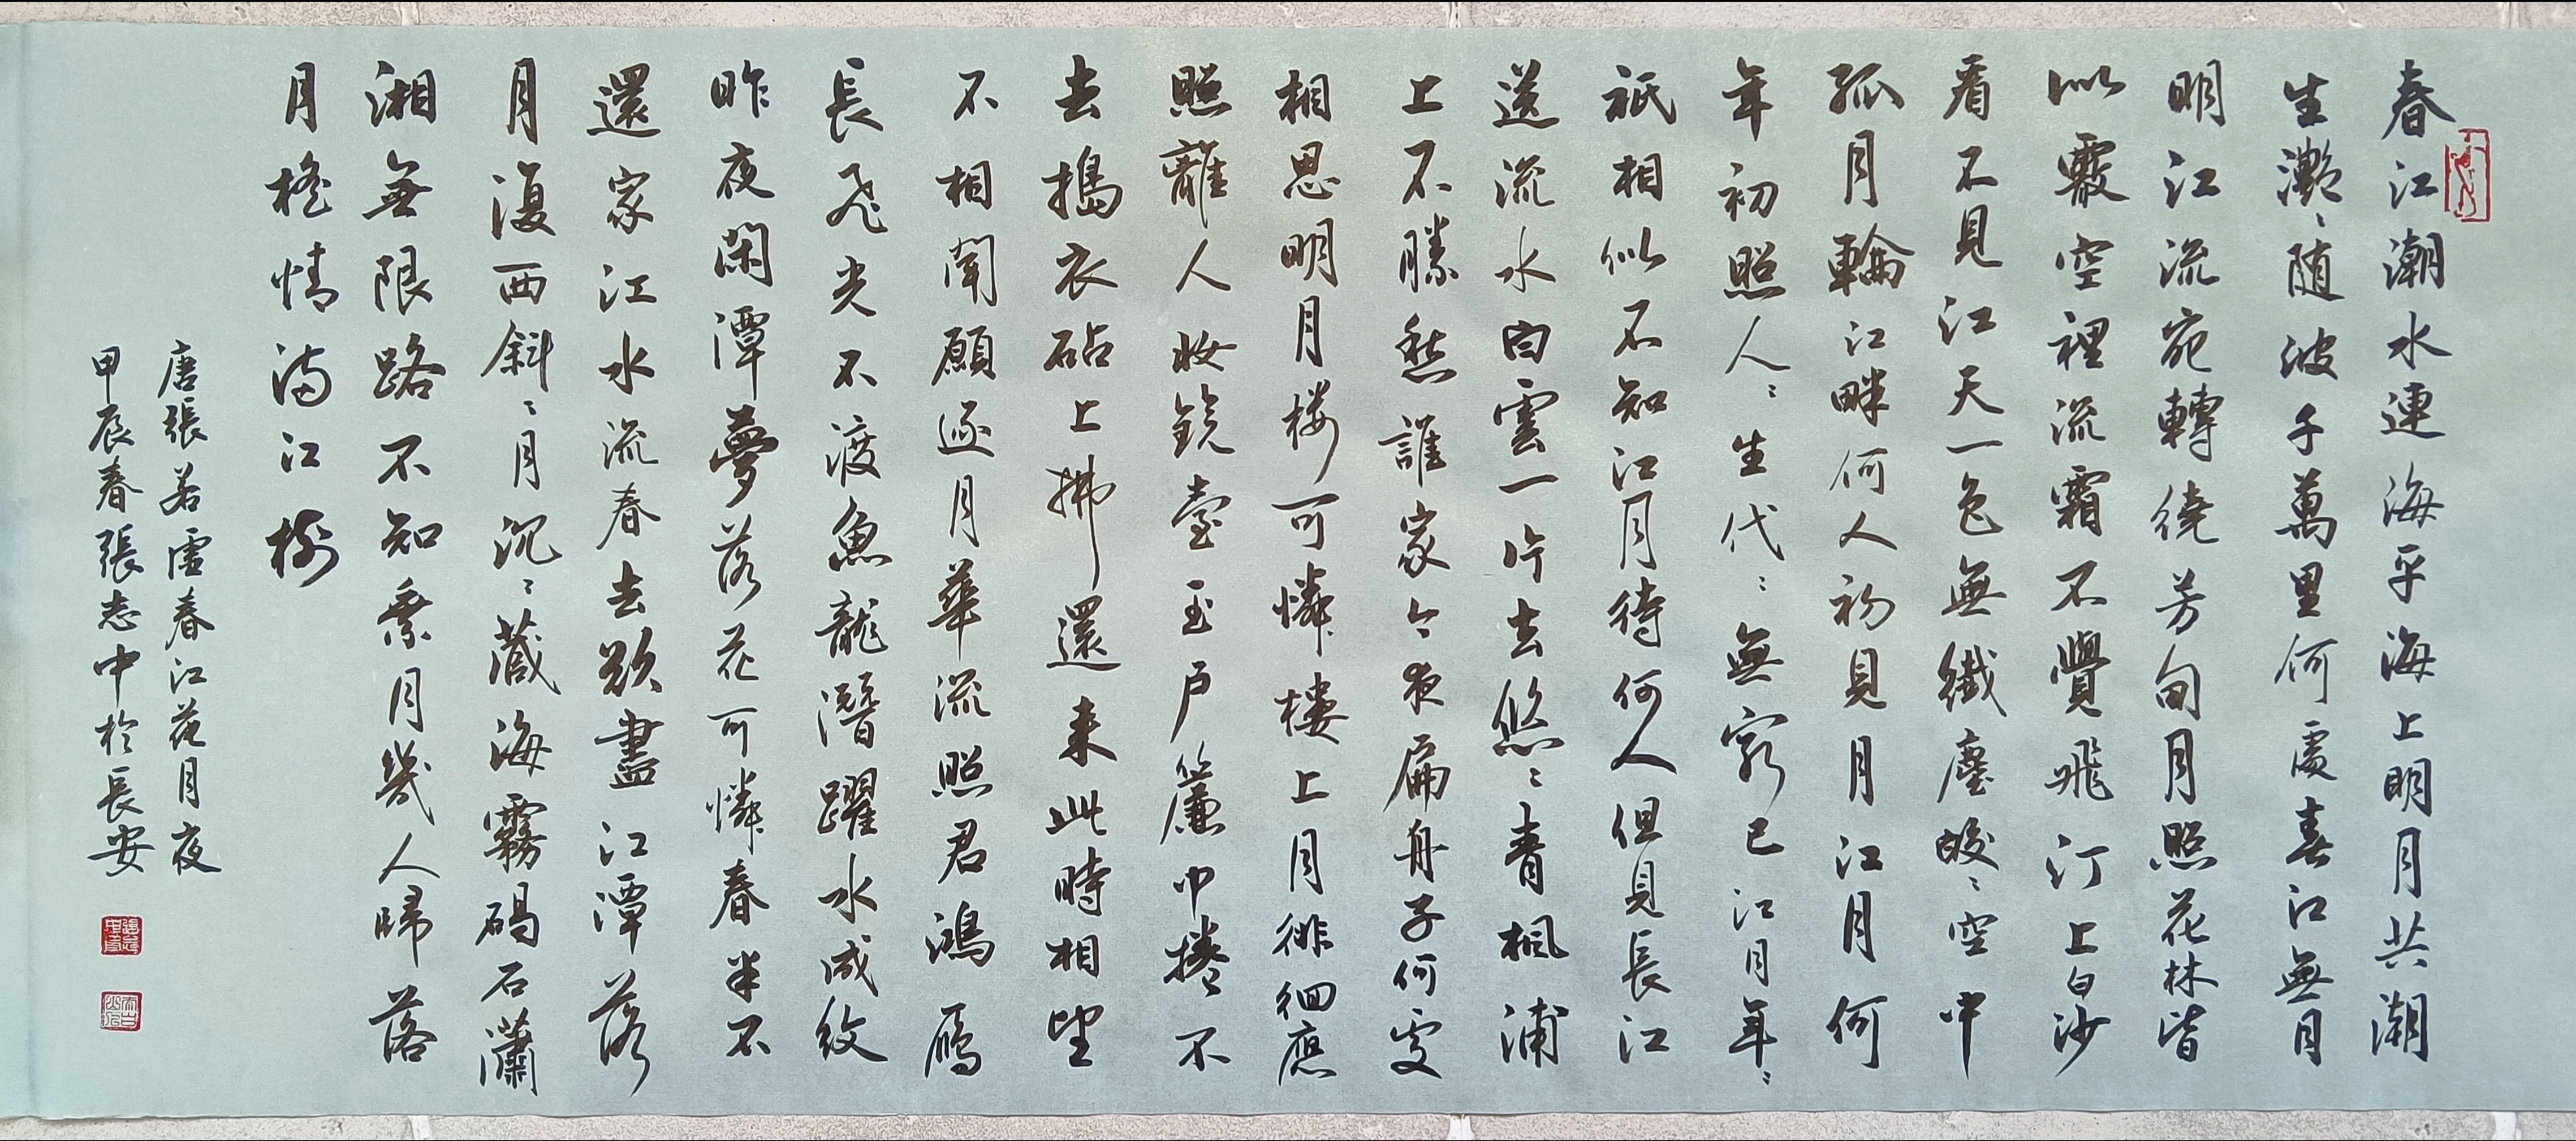 春江潮水連海平海上明月共潮
生灔〻随波千萬里何處春江無月
明江流宛轉繞芳甸月照花林皆
似霰空裡流霜不覺飛汀上白沙
看不見江天一色無纖塵皎〻空中
孤月輪江畔何人初見月江月何
年初照人〻生代〻無窮已江月年〻
祇相似不知江月待何人但見長江
送流水白雲一片去悠〻青楓浦
上不勝愁誰家今夜扁舟子何處
相思明月楼可憐樓上月徘徊應
照離人妝鏡臺玉户簾中捲不
去搗衣砧上拂還来此時相望
不相聞願逐月華流照君鴻雁
長飛光不渡魚龍潛躍水成紋
昨夜閑潭夢落花可憐春半不
還家江水流春去欲盡江潭落
月復西斜〻月沉〻藏海霧碣石瀟
湘無限路不知乘月幾人歸落
月搖情满江樹
唐張若虛春江花月夜
甲辰春張志中於長安